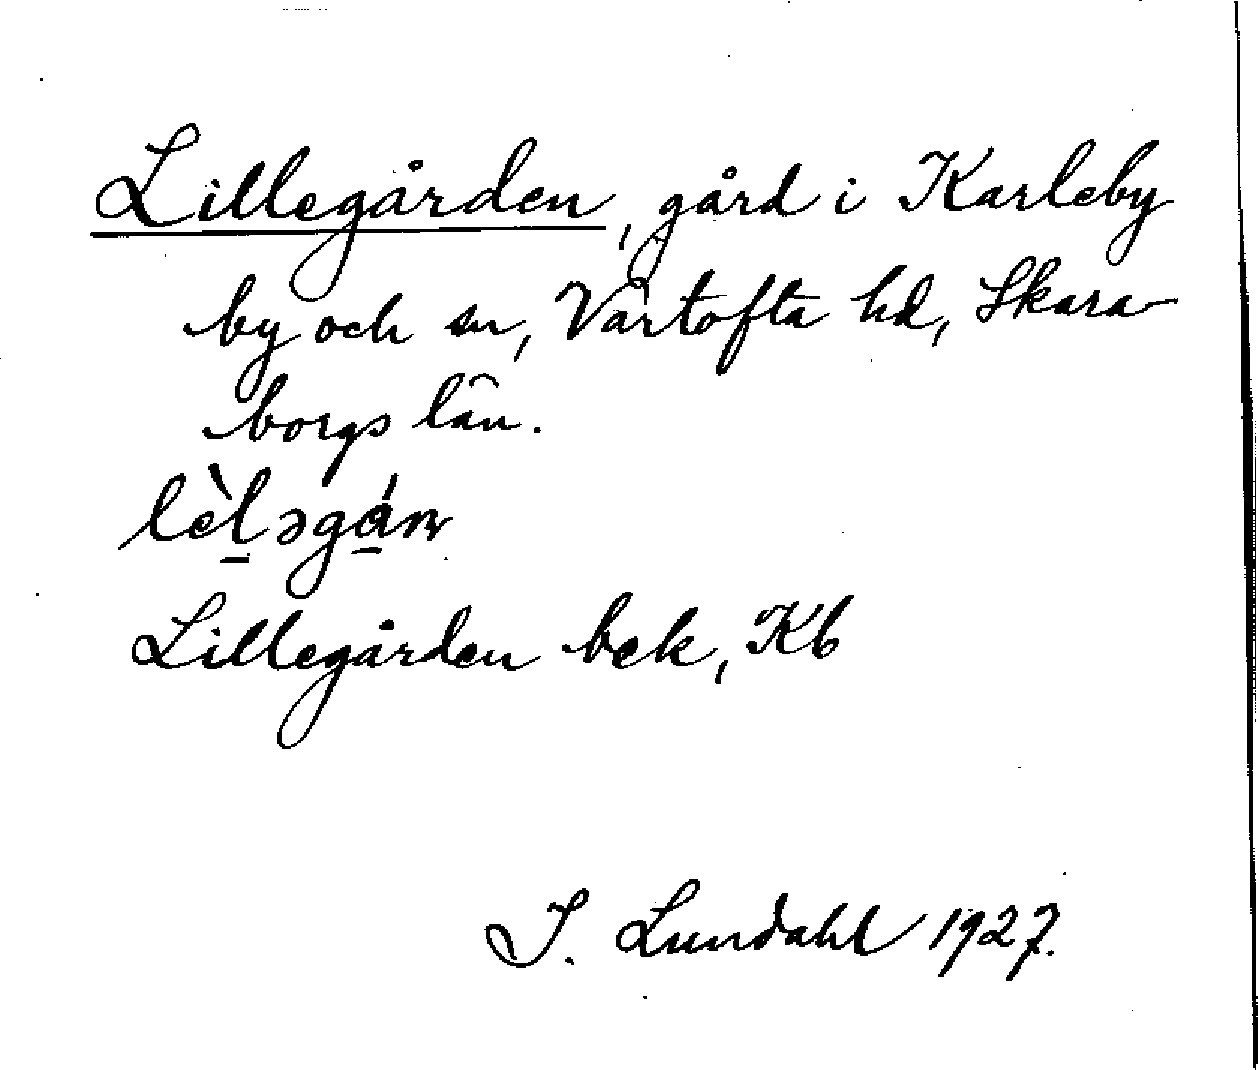 Lillegården, gård i Karleby
by och sn, Vartofta hd, Skara-
borgs län.
lèl̠əgá̠n
Lillegården bek, Kb
I. Lundahl 1927.